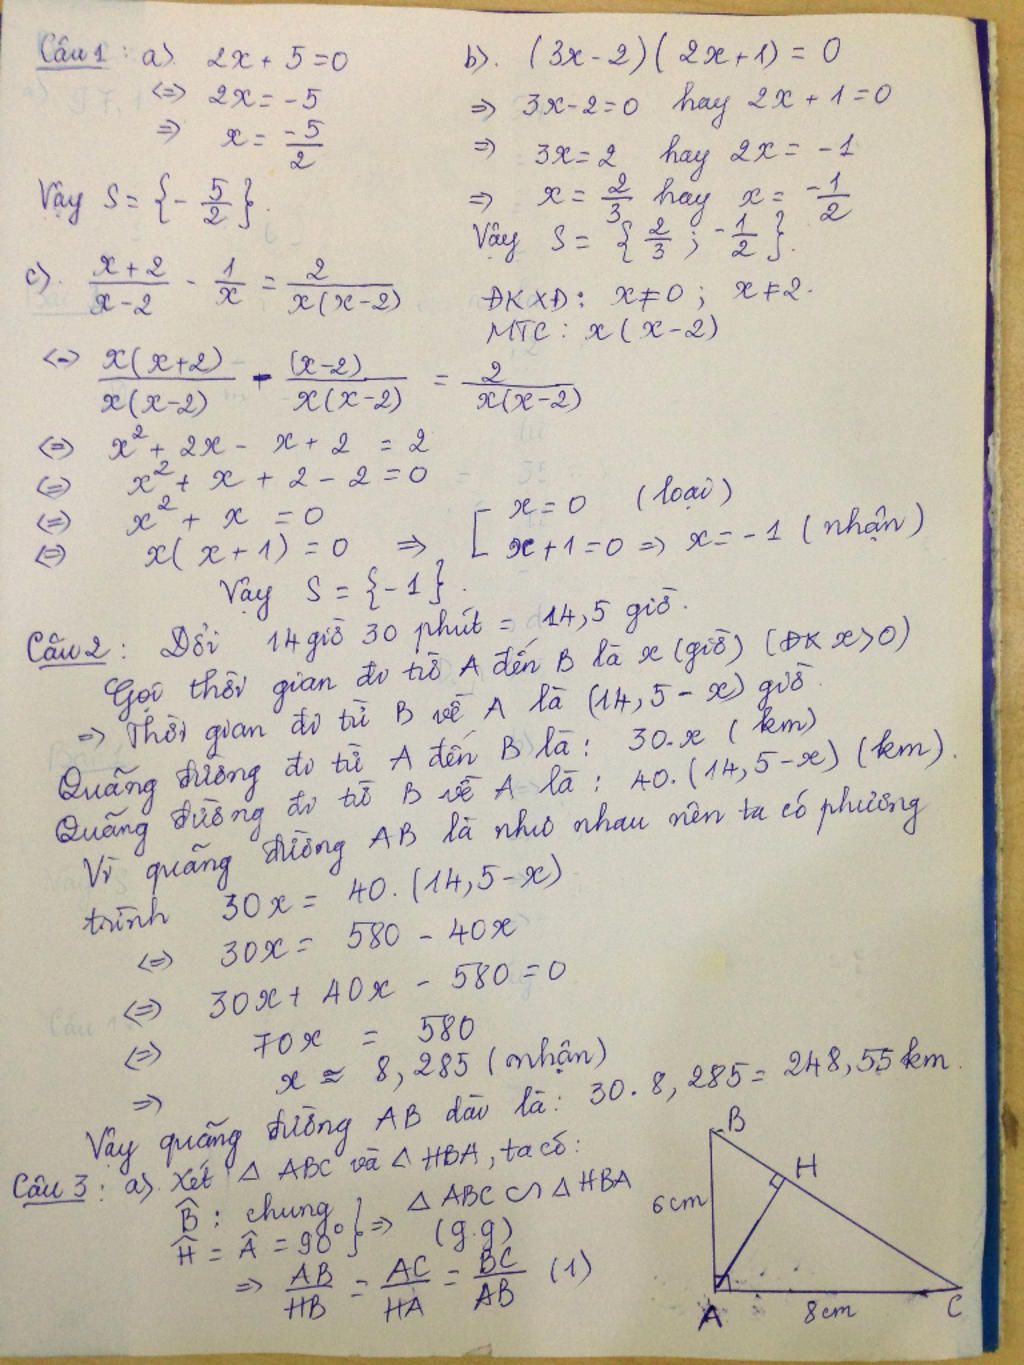 Câu 1 : a). 2x + 5 = 0
<=> 2x = -5
=> x = -5/2
Vậy S = {- 5/2}.
b). (3x - 2)(2x + 1) = 0
=> 3x - 2 = 0 hay 2x + 1 = 0
=> 3x = 2 hay 2x = -1
=> x = 2/3 hay x = -1/2
Vậy S = {2/3 ; -1/2}.
c). (x+2)/(x-2) - 1/x = 2/(x(x-2))
ĐKXĐ: x ≠ 0 ; x ≠ 2.
MTC: x(x-2)
<=> x(x+2)/(x(x-2)) - (x-2)/(x(x-2)) = 2/(x(x-2))
<=> x² + 2x - x + 2 = 2
<=> x² + x + 2 - 2 = 0
<=> x² + x = 0
<=> x(x + 1) = 0 => [ x = 0 (loại)
x + 1 = 0 => x = -1 (nhận)
Vậy S = {-1}.
Câu 2 : Đổi 14 giờ 30 phút = 14,5 giờ.
Gọi thời gian đi từ A đến B là x (giờ) (ĐK x > 0)
=> Thời gian đi từ B về A là (14,5 - x) giờ.
Quãng đường đi từ A đến B là: 30.x (km)
Quãng đường đi từ B về A là: 40.(14,5-x) (km).
Vì quãng đường AB là như nhau nên ta có phương
trình 30x = 40.(14,5-x)
<=> 30x = 580 - 40x
<=> 30x + 40x - 580 = 0
<=> 70x = 580
=> x ≈ 8,285 (nhận)
Vậy quãng đường AB dài là: 30.8,285 = 248,55 km.
Câu 3 : a). Xét △ ABC và △ HBA, ta có:
B̂ : chung
Ĥ = Â = 90° } => △ ABC ∽ △ HBA
(g.g)
=> AB/HB = AC/HA = BC/AB (1)
B
H
6cm
A
8cm
C